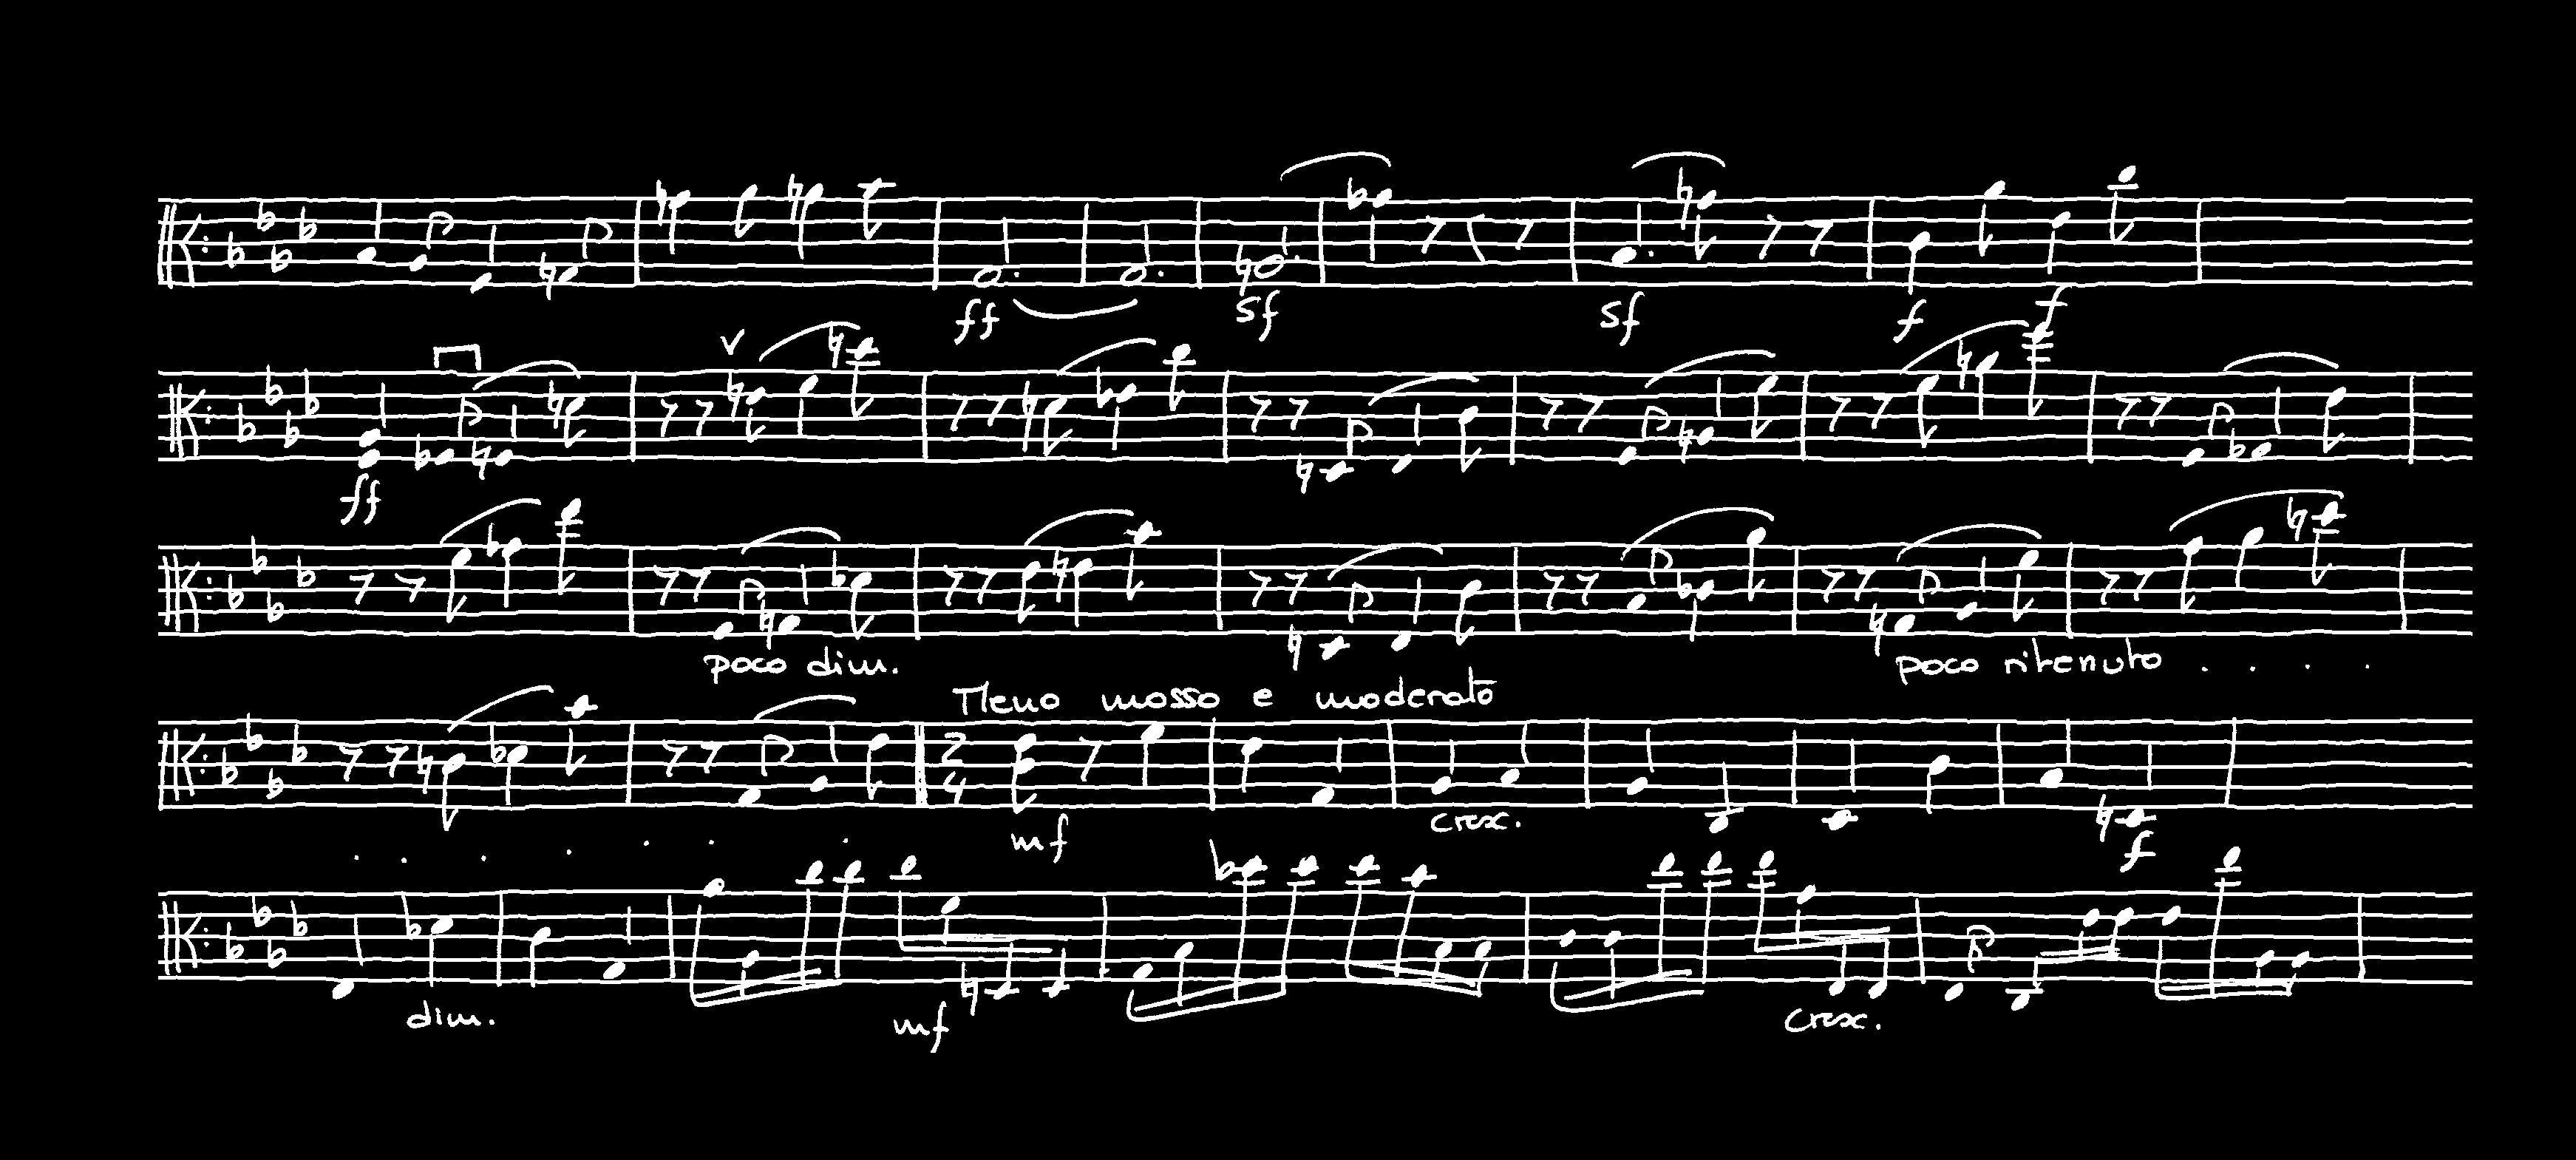 ff sf sf f f
v
ff
poco dim. poco ritenuto . . . .
Meno mosso e moderato
2
4
mf cresc. f
dim. mf cresc.